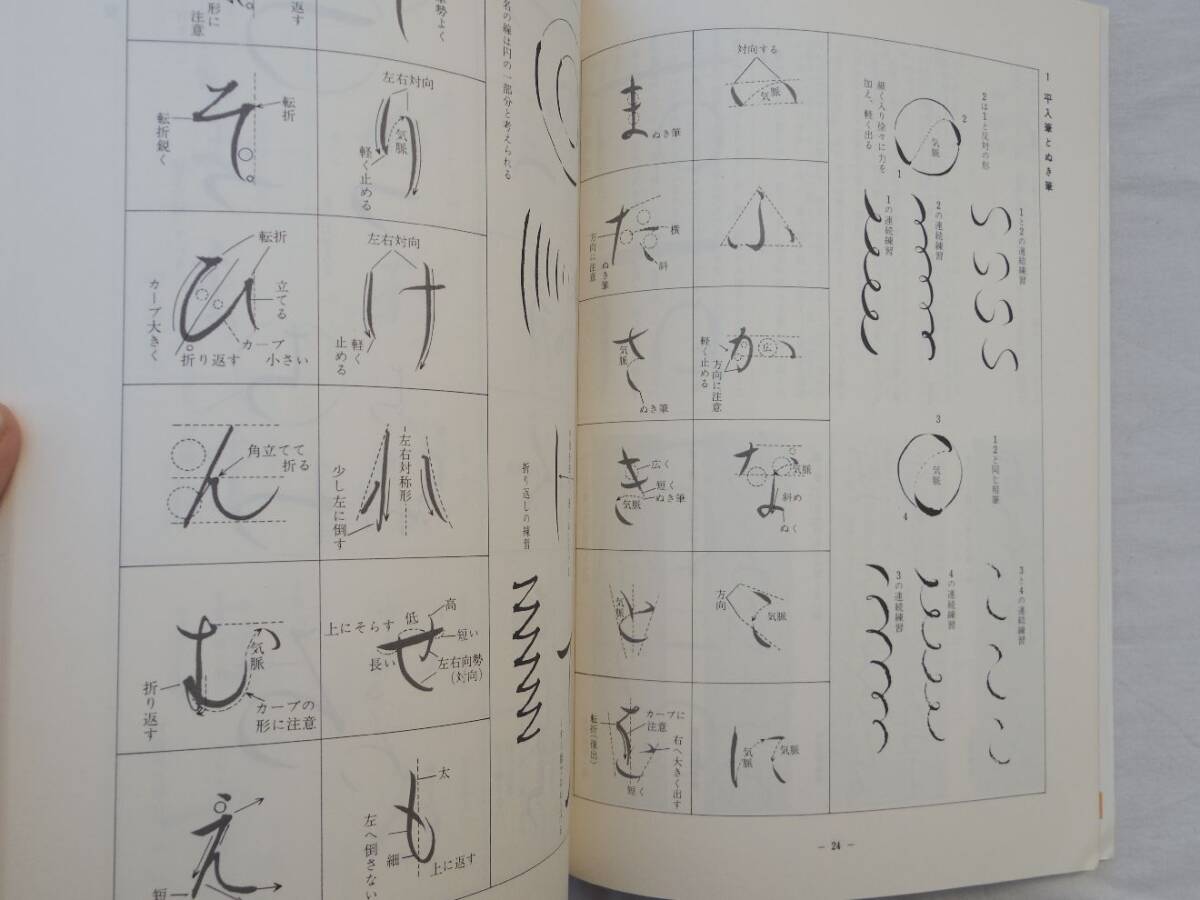 1 平入筆とぬき筆
2は1と反対の形
細く入り徐々に力を
加え、軽く出る
2
気脈
1
1と2の連続練習
2の連続練習
1の連続練習
いいいい
12と同じ用筆
3
気脈
4
3と4の連続練習
4の連続練習
3の連続練習
対向する
気脈
ふ
か
軽く止める
方向に注意
広
な
気脈
斜め
ぬく
こ
方向
気脈
に
気脈
気脈
ま
ぬき筆
た
横
斜
方向に注意
ぬき筆
さ
気脈
ぬき筆
き
広く
短く
ぬき筆
気脈
と
気脈
を
カーブに
注意
転折(強出)
右へ大きく出す
短く
- 24 -
名の線は円の一部分と考えられる
折り返しの練習
勢よく
り
左右対向
気脈
軽く止める
け
左右対向
軽く
止める
左右対称形
少し左に倒す
せ
高
低
上にそらす
短い
長い
左右向勢
(対向)
も
太
細
左へ倒さない
上に返す
返す
形に
注意
そ
転折
転折鋭く
ひ
転折
立てる
カーブ大きく
カーブ
小さい
折り返す
ん
角立てて
折る
む
気脈
折り返す
カーブの
形に注意
え
短